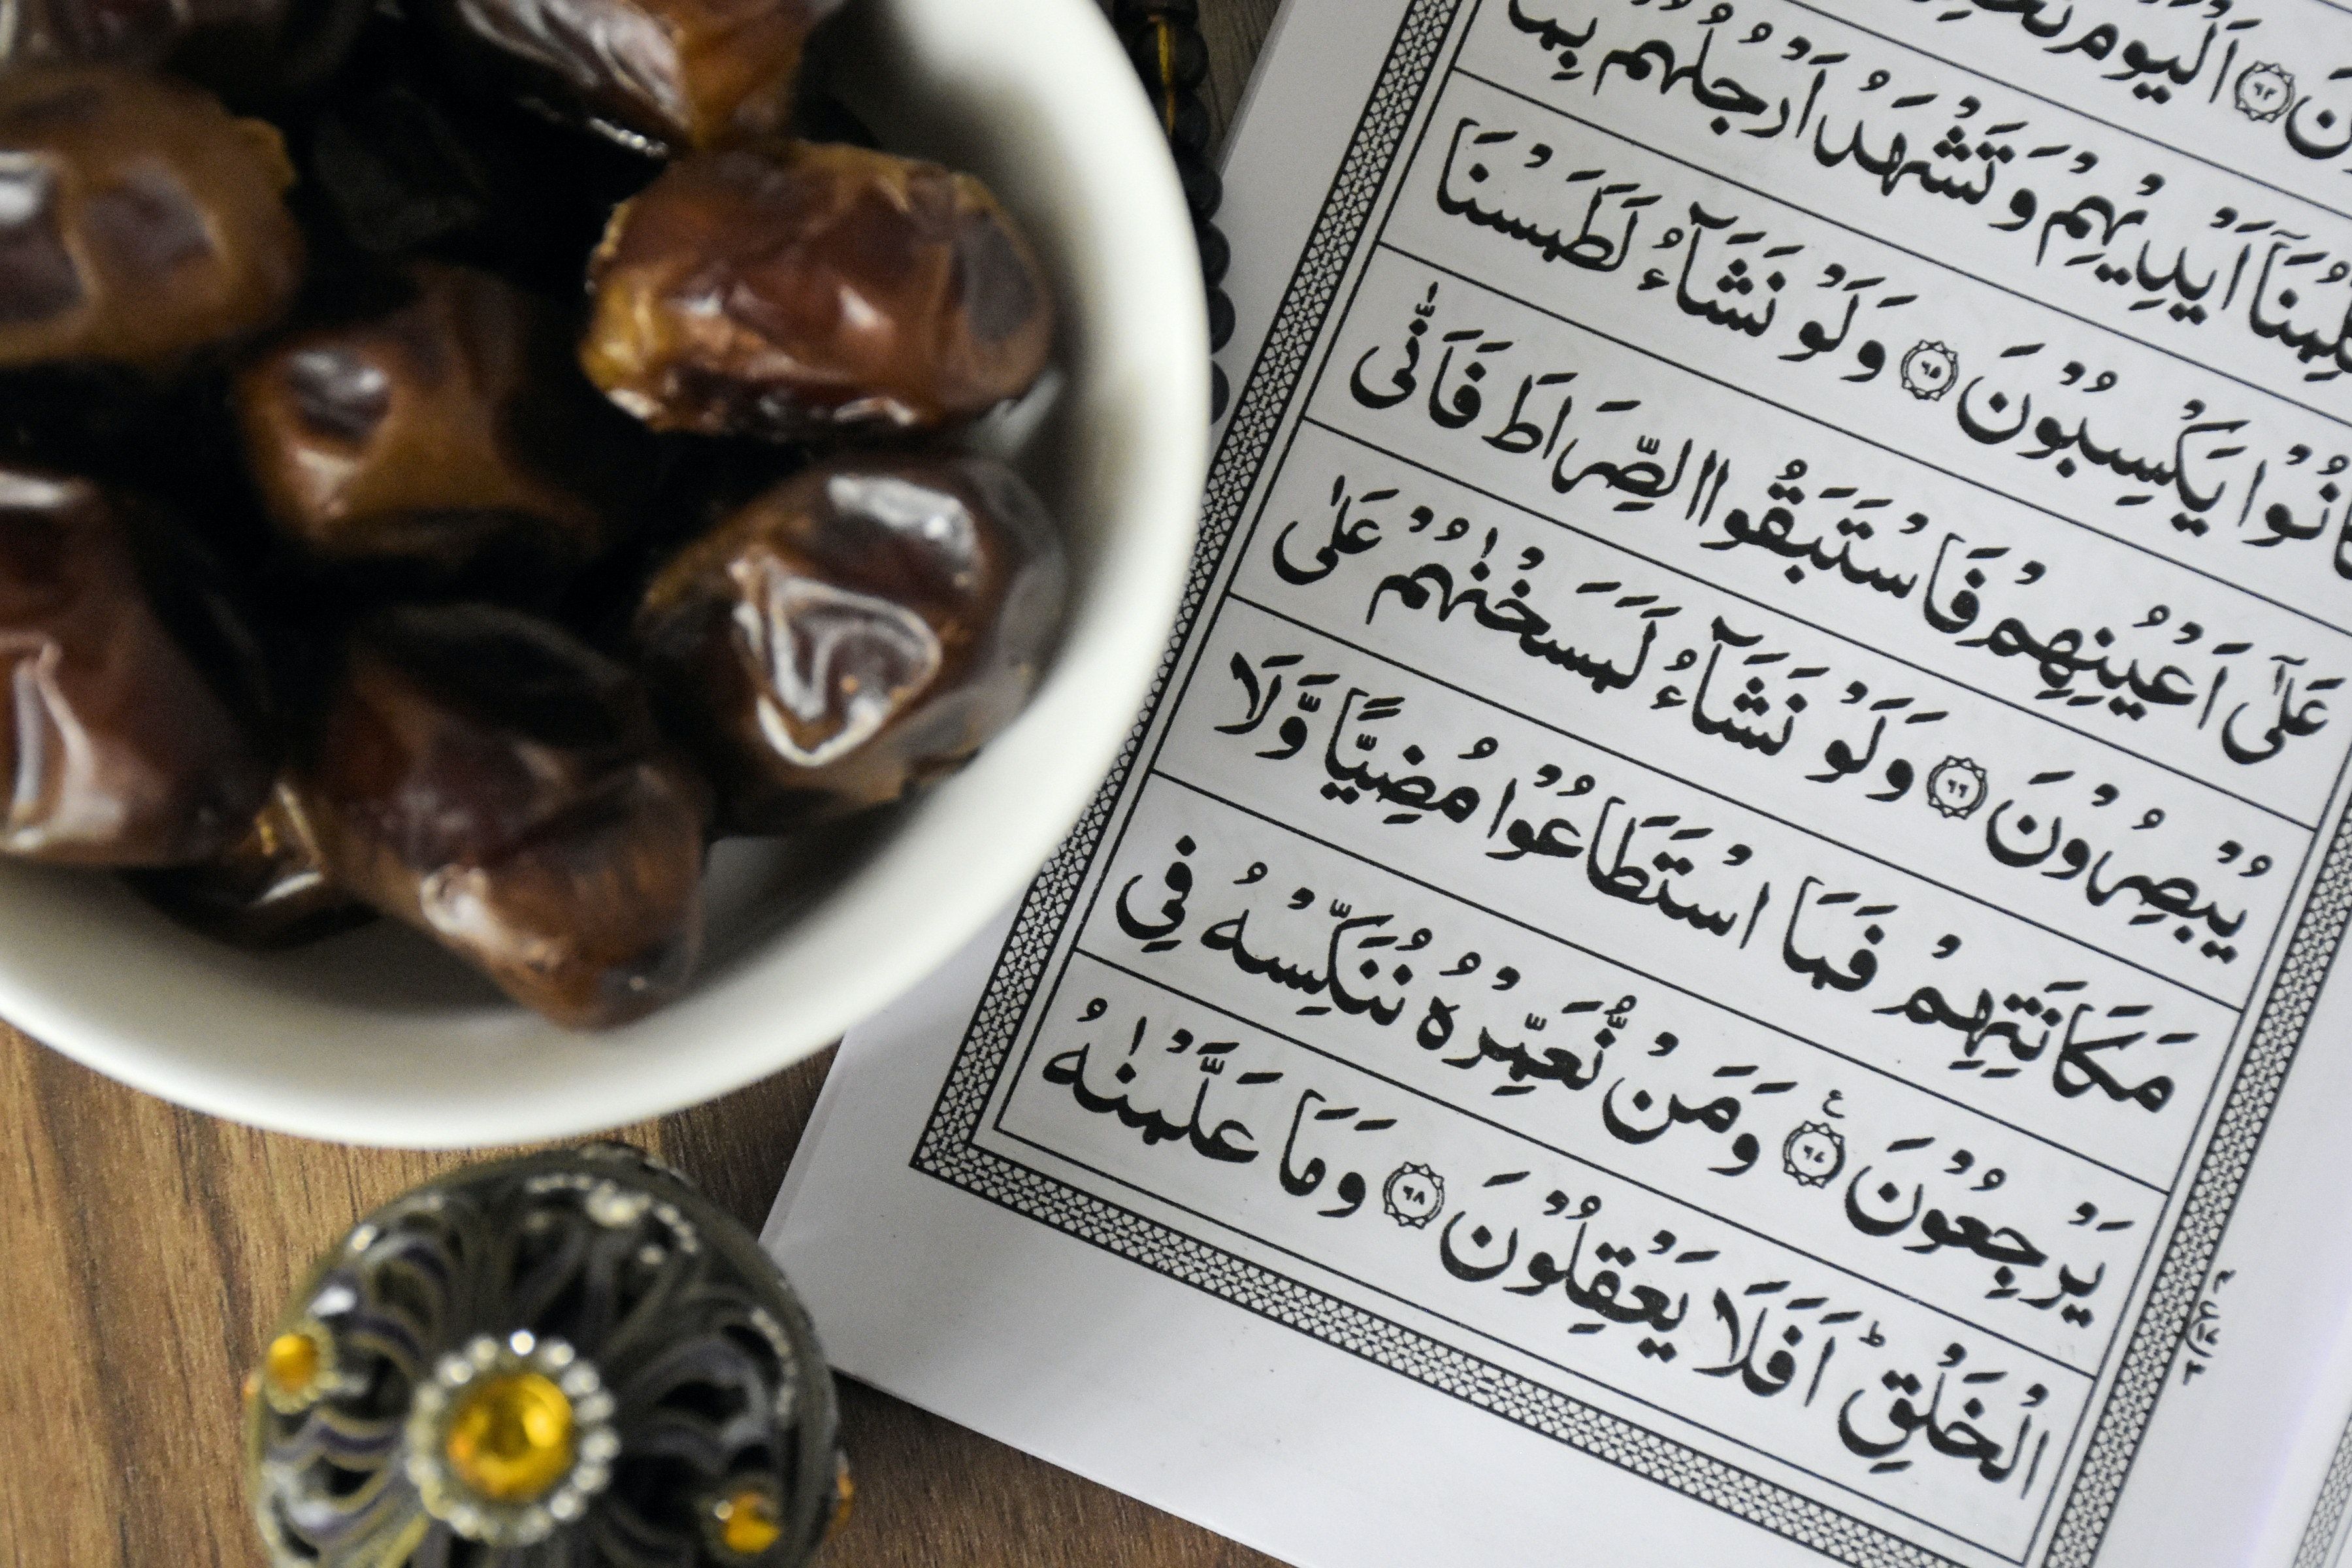 ۝٦٣ اَلْيَوْمَ
اَيْدِيْهِمْ وَتَشْهَدُ اَرْجُلُهُمْ بِمَا
يَكْسِبُوْنَ ۝٦٥ وَلَوْ نَشَآءُ لَطَمَسْنَا
عَلٰٓى اَعْيُنِهِمْ فَاسْتَبَقُوا الصِّرَاطَ فَاَنّٰى
يُبْصِرُوْنَ ۝٦٦ وَلَوْ نَشَآءُ لَمَسَخْنٰهُمْ عَلٰى
مَكَانَتِهِمْ فَمَا اسْتَطَاعُوْا مُضِيًّا وَّلَا
يَرْجِعُوْنَ ۝٦٧ ع وَمَنْ نُّعَمِّرْهُ نُنَكِّسْهُ فِى
الْخَلْقِ ؕ اَفَلَا يَعْقِلُوْنَ ۝٦٨ وَمَا عَلَّمْنٰهُ